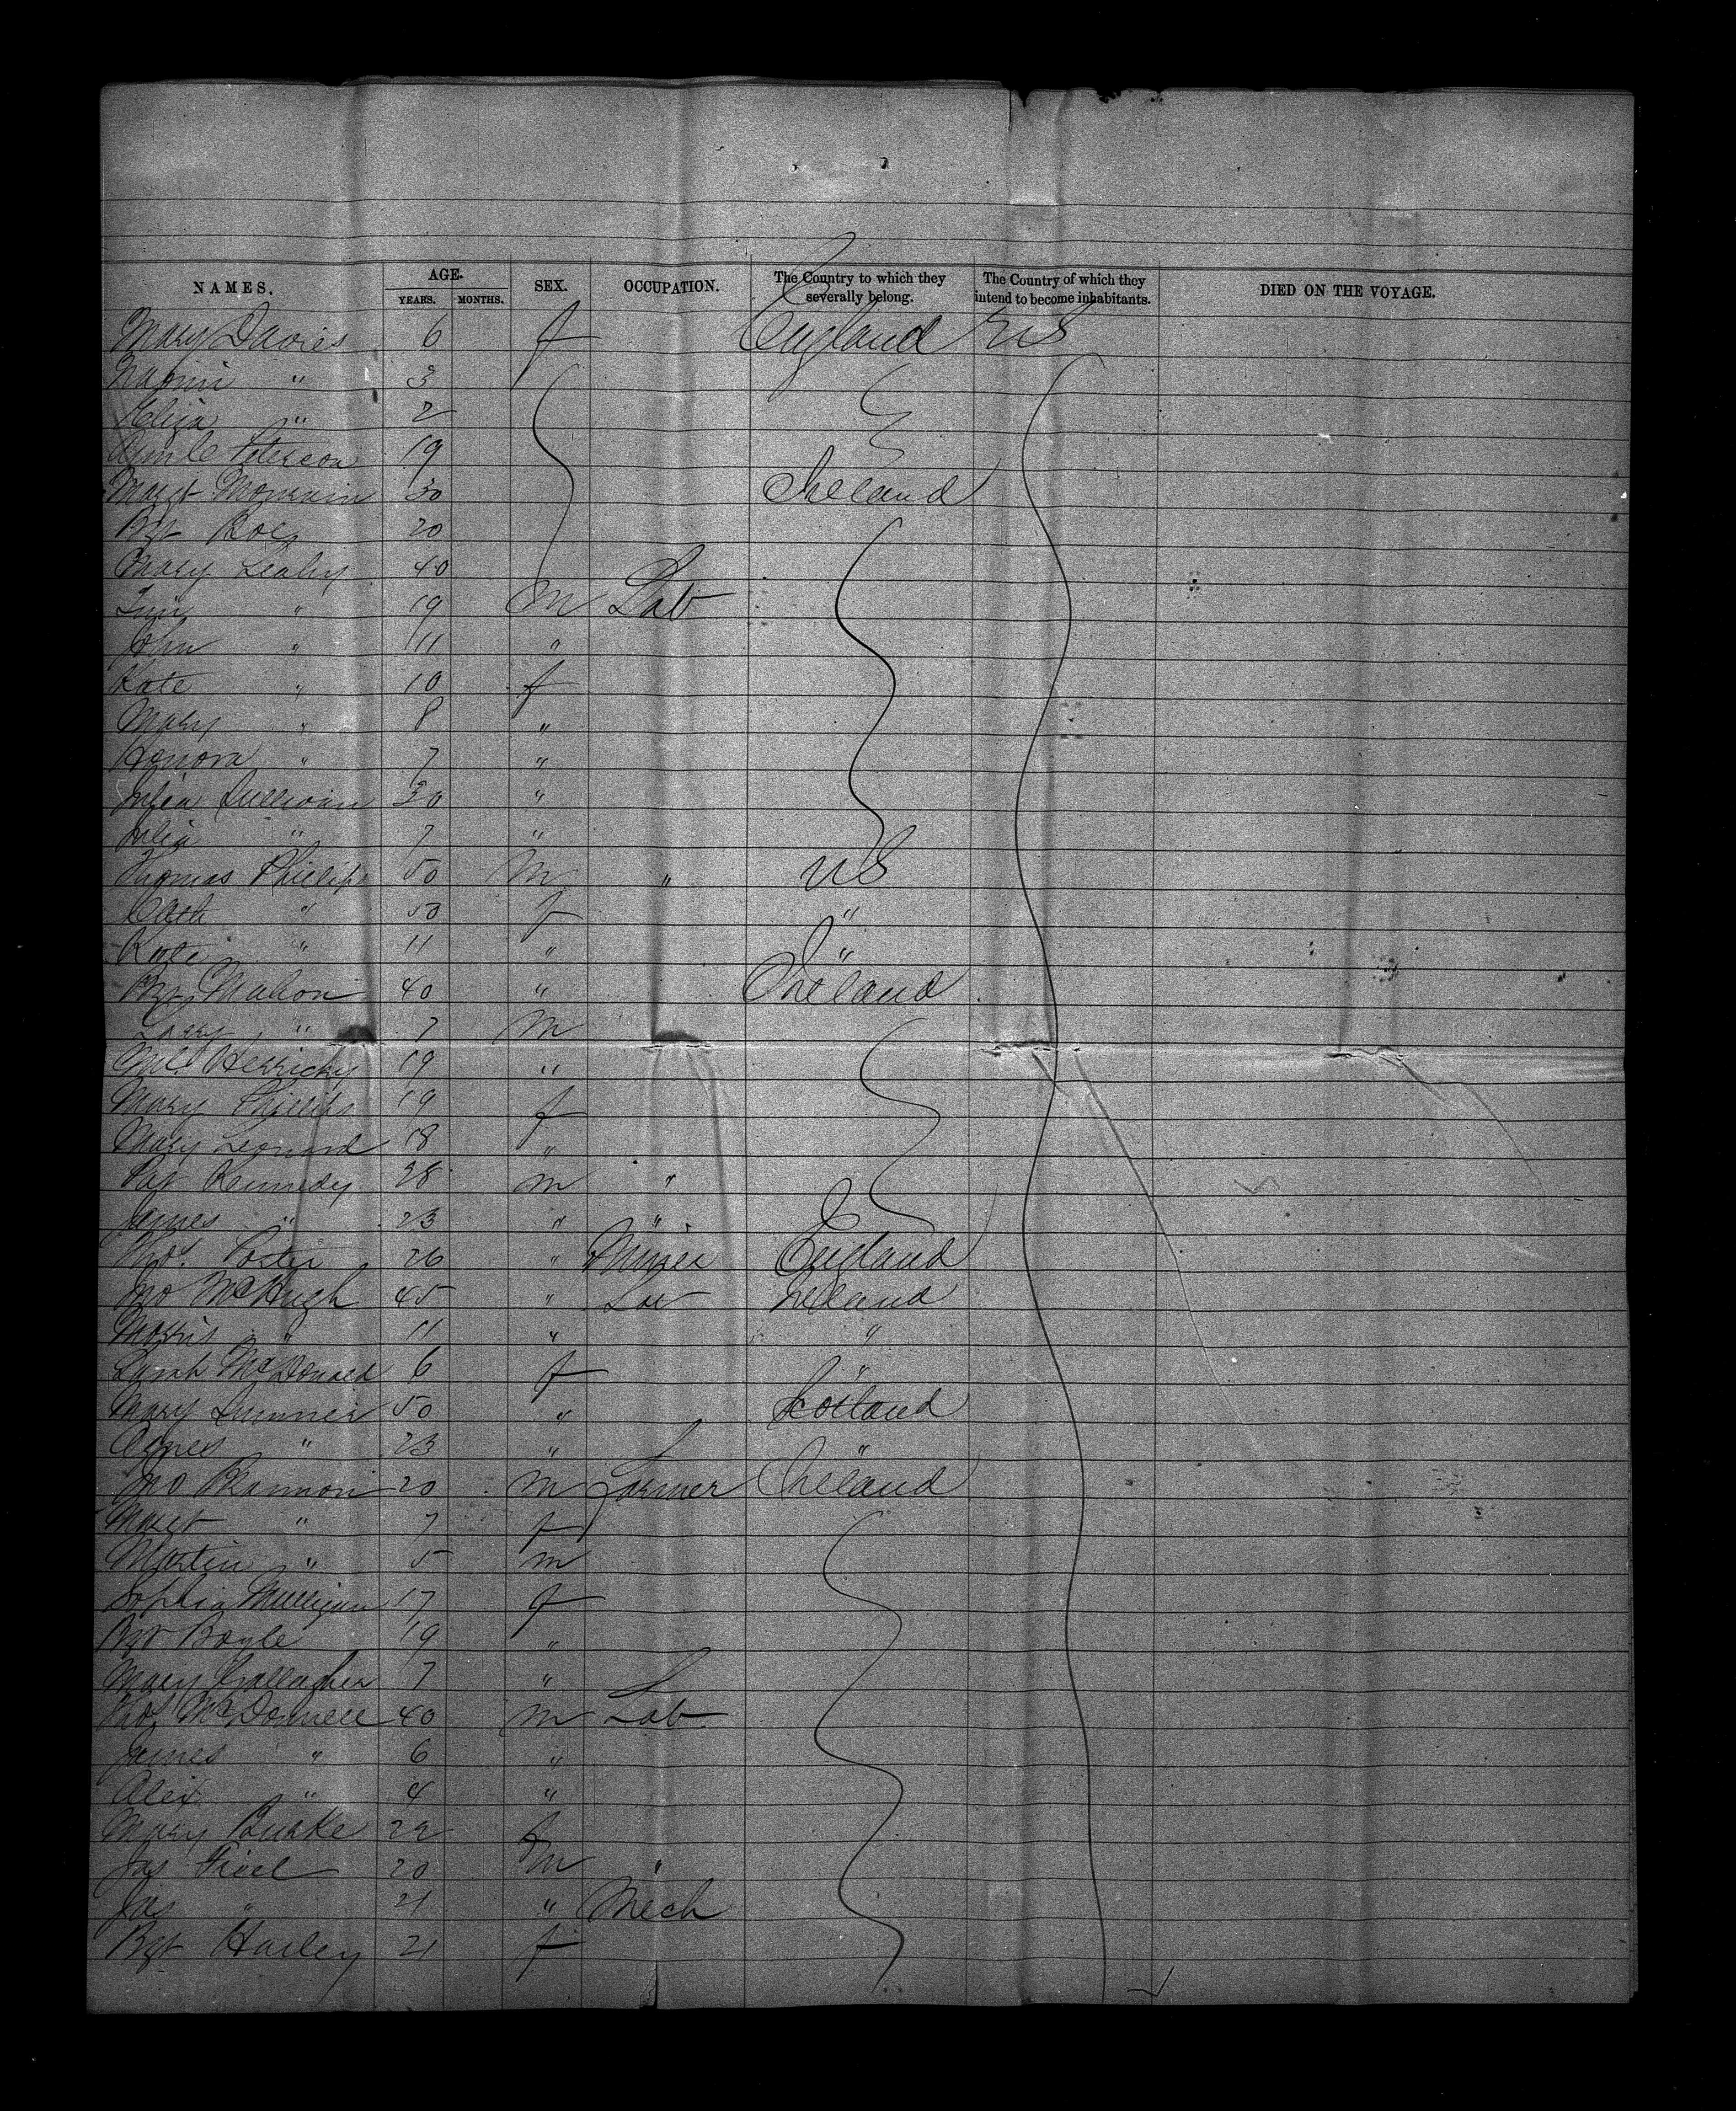 NAMES. AGE. SEX. OCCUPATION. The Country to which they severally belong. The Country of which they intend to become inhabitants. DIED ON THE VOYAGE.
YEARS. MONTHS.
Mary Davies 6 f England U S
Naomi " 3
Eliza " 2
Peterson 19
Margt 30 Ireland
Bgt 20
Mary Leahy 40
Tim " 19 m Lab
John " 11 "
Kate " 10 f
Mary " 8 "
Honora " 7 "
Julia Sullivan 30 "
Julia " 7 "
Thomas Phillips 50 m " U S
Cath " 50 f "
Kate " 11 " "
Bgt Mallon 40 " Ireland
" 7 m
19 "
Mary Phillips 19 f
Mary Leonard 18 "
Pat Kennedy 28 m "
James " 23 " "
Thos. Porter 26 " Miner England
Jno McHugh 45 " Lab Ireland
Morris " 11 " "
Sarah McDonald 6 f "
Mary Sumner 50 " Scotland
Agnes " 23 " "
Jno Brannon 20 m Farmer Ireland
Margt " 7 f
Martin " 5 m
Sophia Mulligan 17 f
Bgt Boyle 19 "
Mary Gallagher 7 "
Thos McDonnell 40 m Lab
James " 6 "
Alex " 4 "
Mary Burke 22 f
Jas 20 m "
Jas " 21 " Mech
Bgt Hurley 21 f